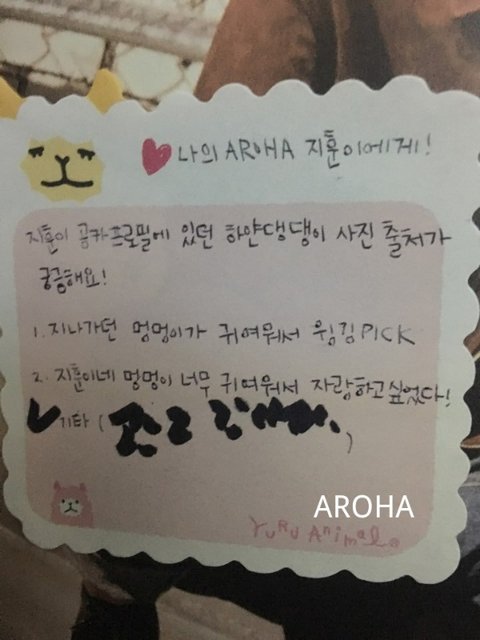 나의 AROHA 지훈이에게!
지훈이 공카프로필에 있던 하얀댕댕이 사진 출처가
궁금해요!
1. 지나가던 멍멍이가 귀여워서 윙깅PICK
2. 지훈이네 멍멍이 너무 귀여워서 자랑하고싶었다!
기타 ( )
AROHA
YURU ANiMaL